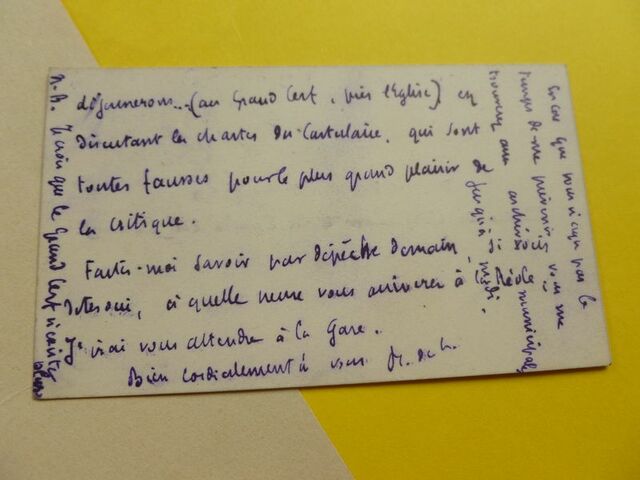 déjeunerons... (au Grand Cerf, près l'Eglise) en
discutant les chartes du Cartulaire, qui sont
toutes fausses pour le plus grand plaisir de
la critique.
Faites-moi savoir par dépêche demain,
si oui, à quelle heure vous arriverez à La Réole
J'irai vous attendre à la Gare.
Bien cordialement à vous
En cas que vous n'ayez pas le
temps de me prévenir, vous me
trouverez aux archives municipales
jusqu'à midi.
N.B. Je crois que le Grand Cerf n'existe
plus